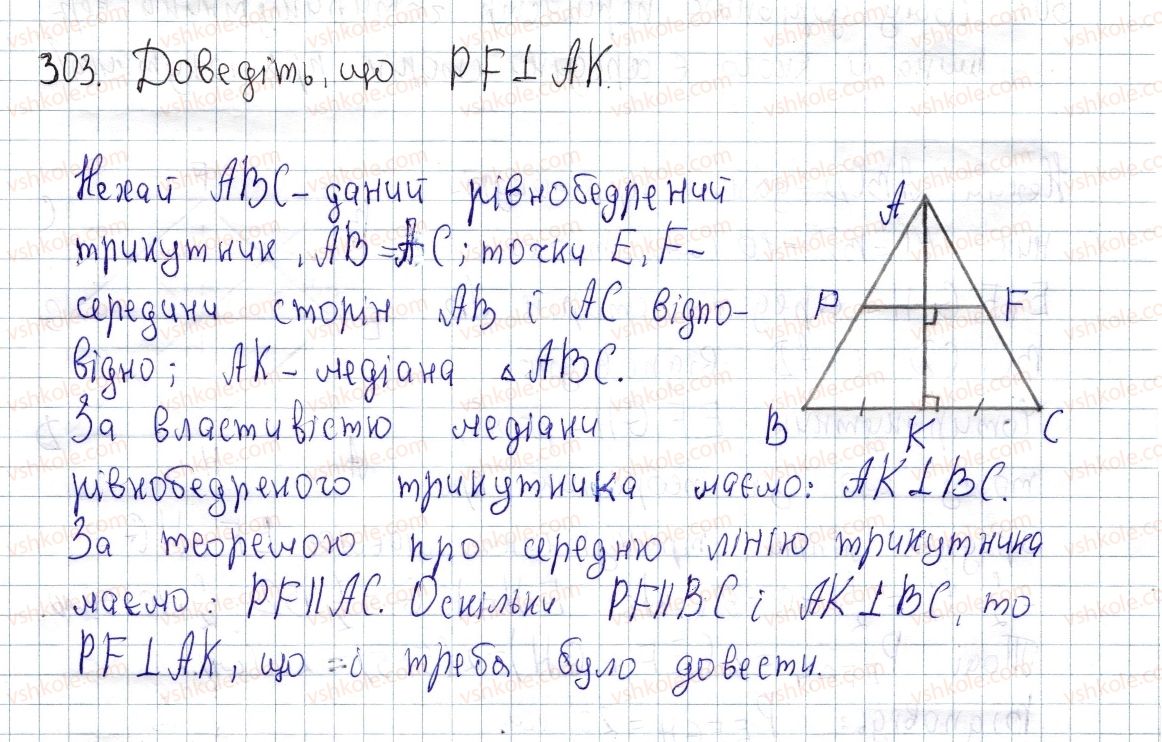 303. Доведіть, що PF⊥AK.
Нехай ABC – даний рівнобедрений
трикутник, AB=AC; точки E, F –
середини сторін AB і AC відпо-
відно; AK – медіана △ABC.
За властивістю медіани
рівнобедреного трикутника маємо: AK⊥BC.
За теоремою про середню лінію трикутника
маємо: PF||AC. Оскільки PF||BC і AK⊥BC, то
PF⊥AK, що і треба було довести.
A
P F
B K C
vshkole.com